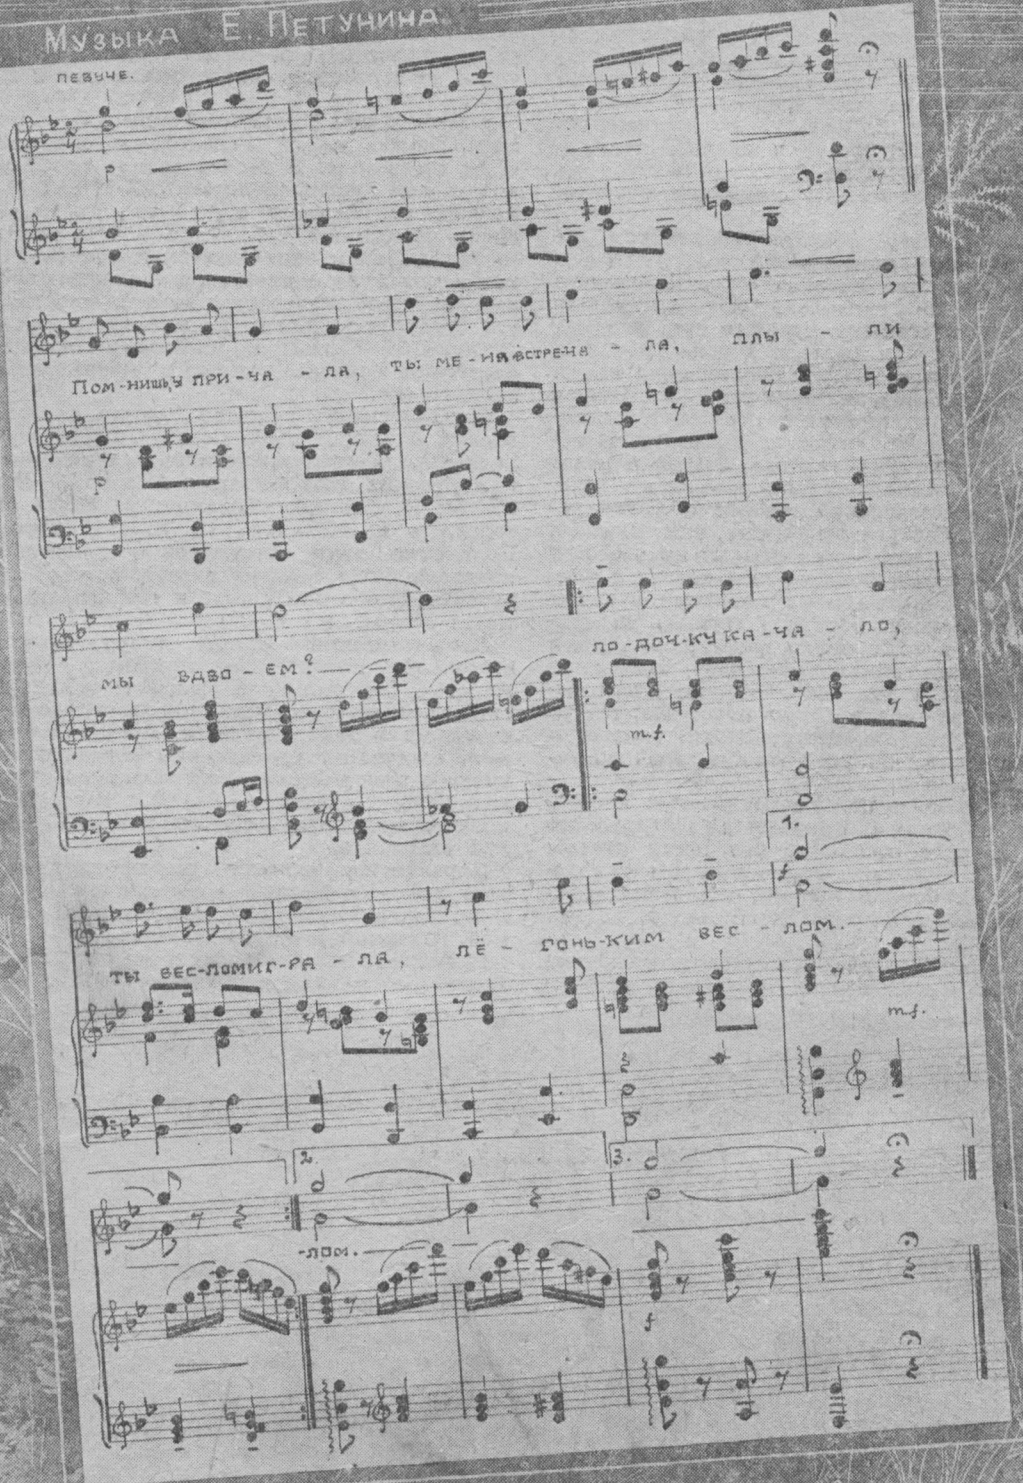 МУЗЫКА Е. ПЕТУНИНА
ПЕВУЧЕ.
ПОМ-НИШЬ, У ПРИ-ЧА - ЛА, ТЫ МЕ-НЯ ВСТРЕ-ЧА - ЛА, ПЛЫ - ЛИ
p
МЫ ВДВО - ЕМ? ЛО-ДОЧ-КУ КА-ЧА - ЛО,
m.f.
1.
ТЫ ВЕС-ЛОМ ИГ-РА - ЛА, ЛЁ - ГОНЬ-КИМ ВЕС - ЛОМ.
m.f.
2. 3.
-ЛОМ.
f